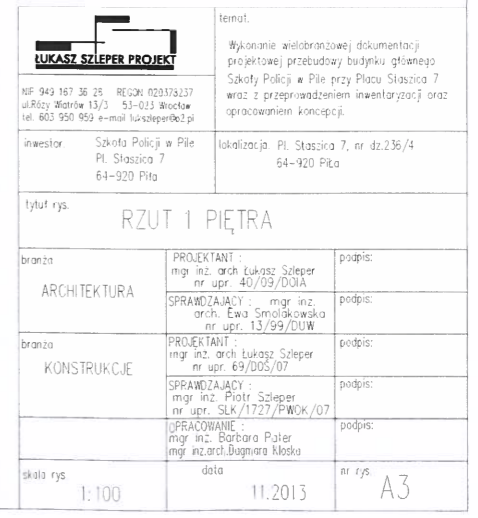 ŁUKASZ SZLEPER PROJEKT
NIP 949 167 36 25 REGON 020373237
ul.Róży Wiatrów 13/3 53-023 Wrocław
tel. 603 950 959 e-mail lukszleper@o2.pl
temat.
Wykonanie wielobranżowej dokumentacji
projektowej przebudowy budynku głównego
Szkoły Policji w Pile przy Placu Staszica 7
wraz z przeprowadzeniem inwentaryzacji oraz
opracowaniem koncepcji.
inwestor Szkoła Policji w Pile
Pl. Staszica 7
64-920 Piła
lokalizacja Pl. Staszica 7, nr dz.236/4
64-920 Piła
tytuł rys.
RZUT 1 PIĘTRA
branża
ARCHITEKTURA
PROJEKTANT :
mgr inż. arch Łukasz Szleper
nr upr. 40/09/DOIA
podpis:
SPRAWDZAJĄCY : mgr inz.
arch. Ewa Smolakowska
nr upr. 13/99/DUW
podpis:
branża
KONSTRUKCJE
PROJEKTANT :
mgr inż. arch Łukasz Szleper
nr upr. 69/DOŚ/07
podpis:
SPRAWDZAJĄCY :
mgr inż. Piotr Szleper
nr upr. SLK/1727/PWOK/07
podpis:
OPRACOWANIE :
mgr inż. Barbara Pater
mgr inż.arch.Dagmara Kloska
podpis:
skala rys
1:100
data
11.2013
nr rys.
A3